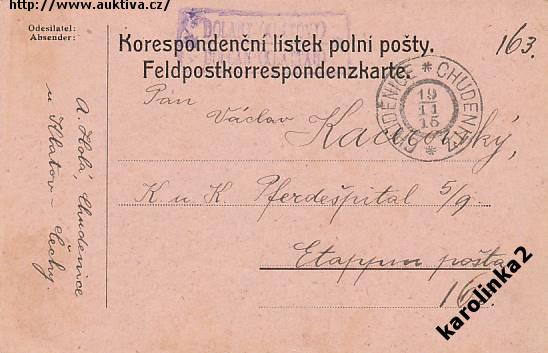 http://www.auktiva.cz/
Odesílatel:
Absender:
163.
Korespondenční lístek polní pošty.
Feldpostkorrespondenzkarte.
CHUDENICE * CHUDENITZ *
19
11
15
Pán
Václav
K u K. Pferdešpital 5/9.
Etappen pošta
A. Holá, Chudenice
u Klatov - Čechy.
karolinka2